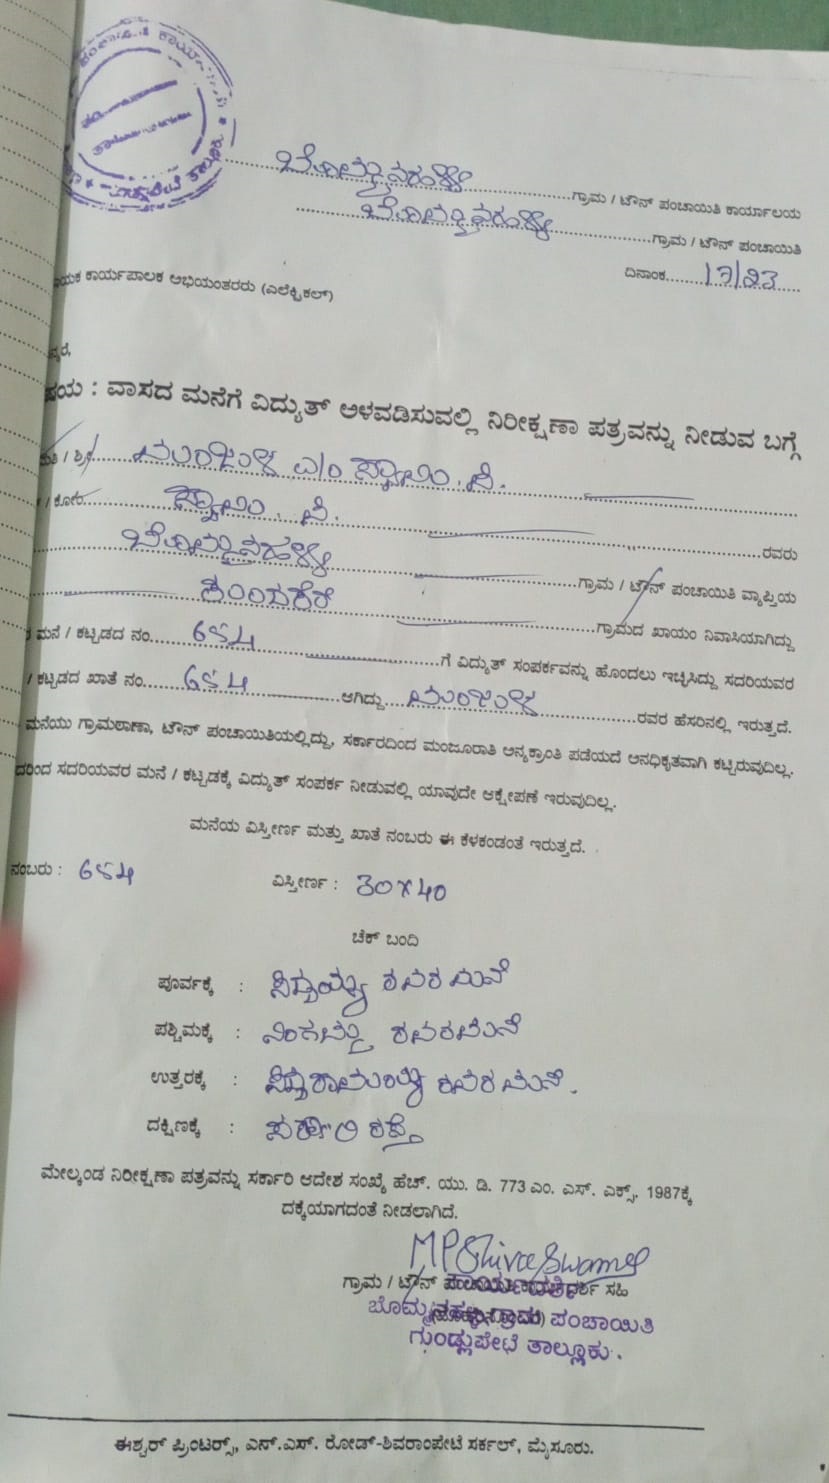 ಬೊಮ್ಮನಹಳ್ಳಿ ಗ್ರಾಮ / ಟೌನ್ ಪಂಚಾಯಿತಿ ಕಾರ್ಯಾಲಯ
ಬೊಮ್ಮನಹಳ್ಳಿ ಗ್ರಾಮ / ಟೌನ್ ಪಂಚಾಯಿತಿ
ದಿನಾಂಕ
ಕಾರ್ಯಪಾಲಕ ಅಭಿಯಂತರರು (ಎಲೆಕ್ಟ್ರಿಕಲ್)
ವಾಸದ ಮನೆಗೆ ವಿದ್ಯುತ್ ಅಳವಡಿಸುವಲ್ಲಿ ನಿರೀಕ್ಷಣಾ ಪತ್ರವನ್ನು ನೀಡುವ ಬಗ್ಗೆ
/ ಶ್ರೀ ಮಂಜುಳ
/ ಕೋಂ
ಬೊಮ್ಮನಹಳ್ಳಿ ರವರು
ಗ್ರಾಮ / ಟೌನ್ ಪಂಚಾಯಿತಿ ವ್ಯಾಪ್ತಿಯ
ಗ್ರಾಮದ ಖಾಯಂ ನಿವಾಸಿಯಾಗಿದ್ದು
ಮನೆ / ಕಟ್ಟಡದ ನಂ. 654 ಗೆ ವಿದ್ಯುತ್ ಸಂಪರ್ಕವನ್ನು ಹೊಂದಲು ಇಚ್ಛಿಸಿದ್ದು ಸದರಿಯವರ
/ ಕಟ್ಟಡದ ಖಾತೆ ನಂ. 654 ಆಗಿದ್ದು ಮಂಜುಳ ರವರ ಹೆಸರಿನಲ್ಲಿ ಇರುತ್ತದೆ.
ಮನೆಯು ಗ್ರಾಮಠಾಣಾ, ಟೌನ್ ಪಂಚಾಯಿತಿಯಲ್ಲಿದ್ದು, ಸರ್ಕಾರದಿಂದ ಮಂಜೂರಾತಿ ಅನ್ಯಕ್ರಾಂತಿ ಪಡೆಯದೆ ಅನಧಿಕೃತವಾಗಿ ಕಟ್ಟಿರುವುದಿಲ್ಲ.
ಸದರಿಯವರ ಮನೆ / ಕಟ್ಟಡಕ್ಕೆ ವಿದ್ಯುತ್ ಸಂಪರ್ಕ ನೀಡುವಲ್ಲಿ ಯಾವುದೇ ಆಕ್ಷೇಪಣೆ ಇರುವುದಿಲ್ಲ.
ಮನೆಯ ವಿಸ್ತೀರ್ಣ ಮತ್ತು ಖಾತೆ ನಂಬರು ಈ ಕೆಳಕಂಡಂತೆ ಇರುತ್ತದೆ.
ನಂಬರು : 654 ವಿಸ್ತೀರ್ಣ : 30x40
ಚೆಕ್ ಬಂದಿ
ಪೂರ್ವಕ್ಕೆ : ಸಿದ್ದಯ್ಯ ರವರ ಮನೆ
ಪಶ್ಚಿಮಕ್ಕೆ : ರವರ ಮನೆ
ಉತ್ತರಕ್ಕೆ : ರವರ ಮನೆ.
ದಕ್ಷಿಣಕ್ಕೆ : ಸರ್ಕಾರಿ ರಸ್ತೆ
ಮೇಲ್ಕಂಡ ನಿರೀಕ್ಷಣಾ ಪತ್ರವನ್ನು ಸರ್ಕಾರಿ ಆದೇಶ ಸಂಖ್ಯೆ ಹೆಚ್. ಯು. ಡಿ. 773 ಎಂ. ಎಸ್. ಎಕ್ಸ್. 1987ಕ್ಕೆ
ದಕ್ಕೆಯಾಗದಂತೆ ನೀಡಲಾಗಿದೆ.
MPShivaSwamy
ಗ್ರಾಮ / ಟೌನ್ ಸಹಿ
ಬೊಮ್ಮನಹಳ್ಳಿ ಗ್ರಾಮ ಪಂಚಾಯಿತಿ
ಗುಂಡ್ಲುಪೇಟೆ ತಾಲ್ಲೂಕು.
ಈಶ್ವರ್ ಪ್ರಿಂಟರ್ಸ್, ಎನ್.ಎಸ್. ರೋಡ್-ಶಿವರಾಂಪೇಟೆ ಸರ್ಕಲ್, ಮೈಸೂರು.